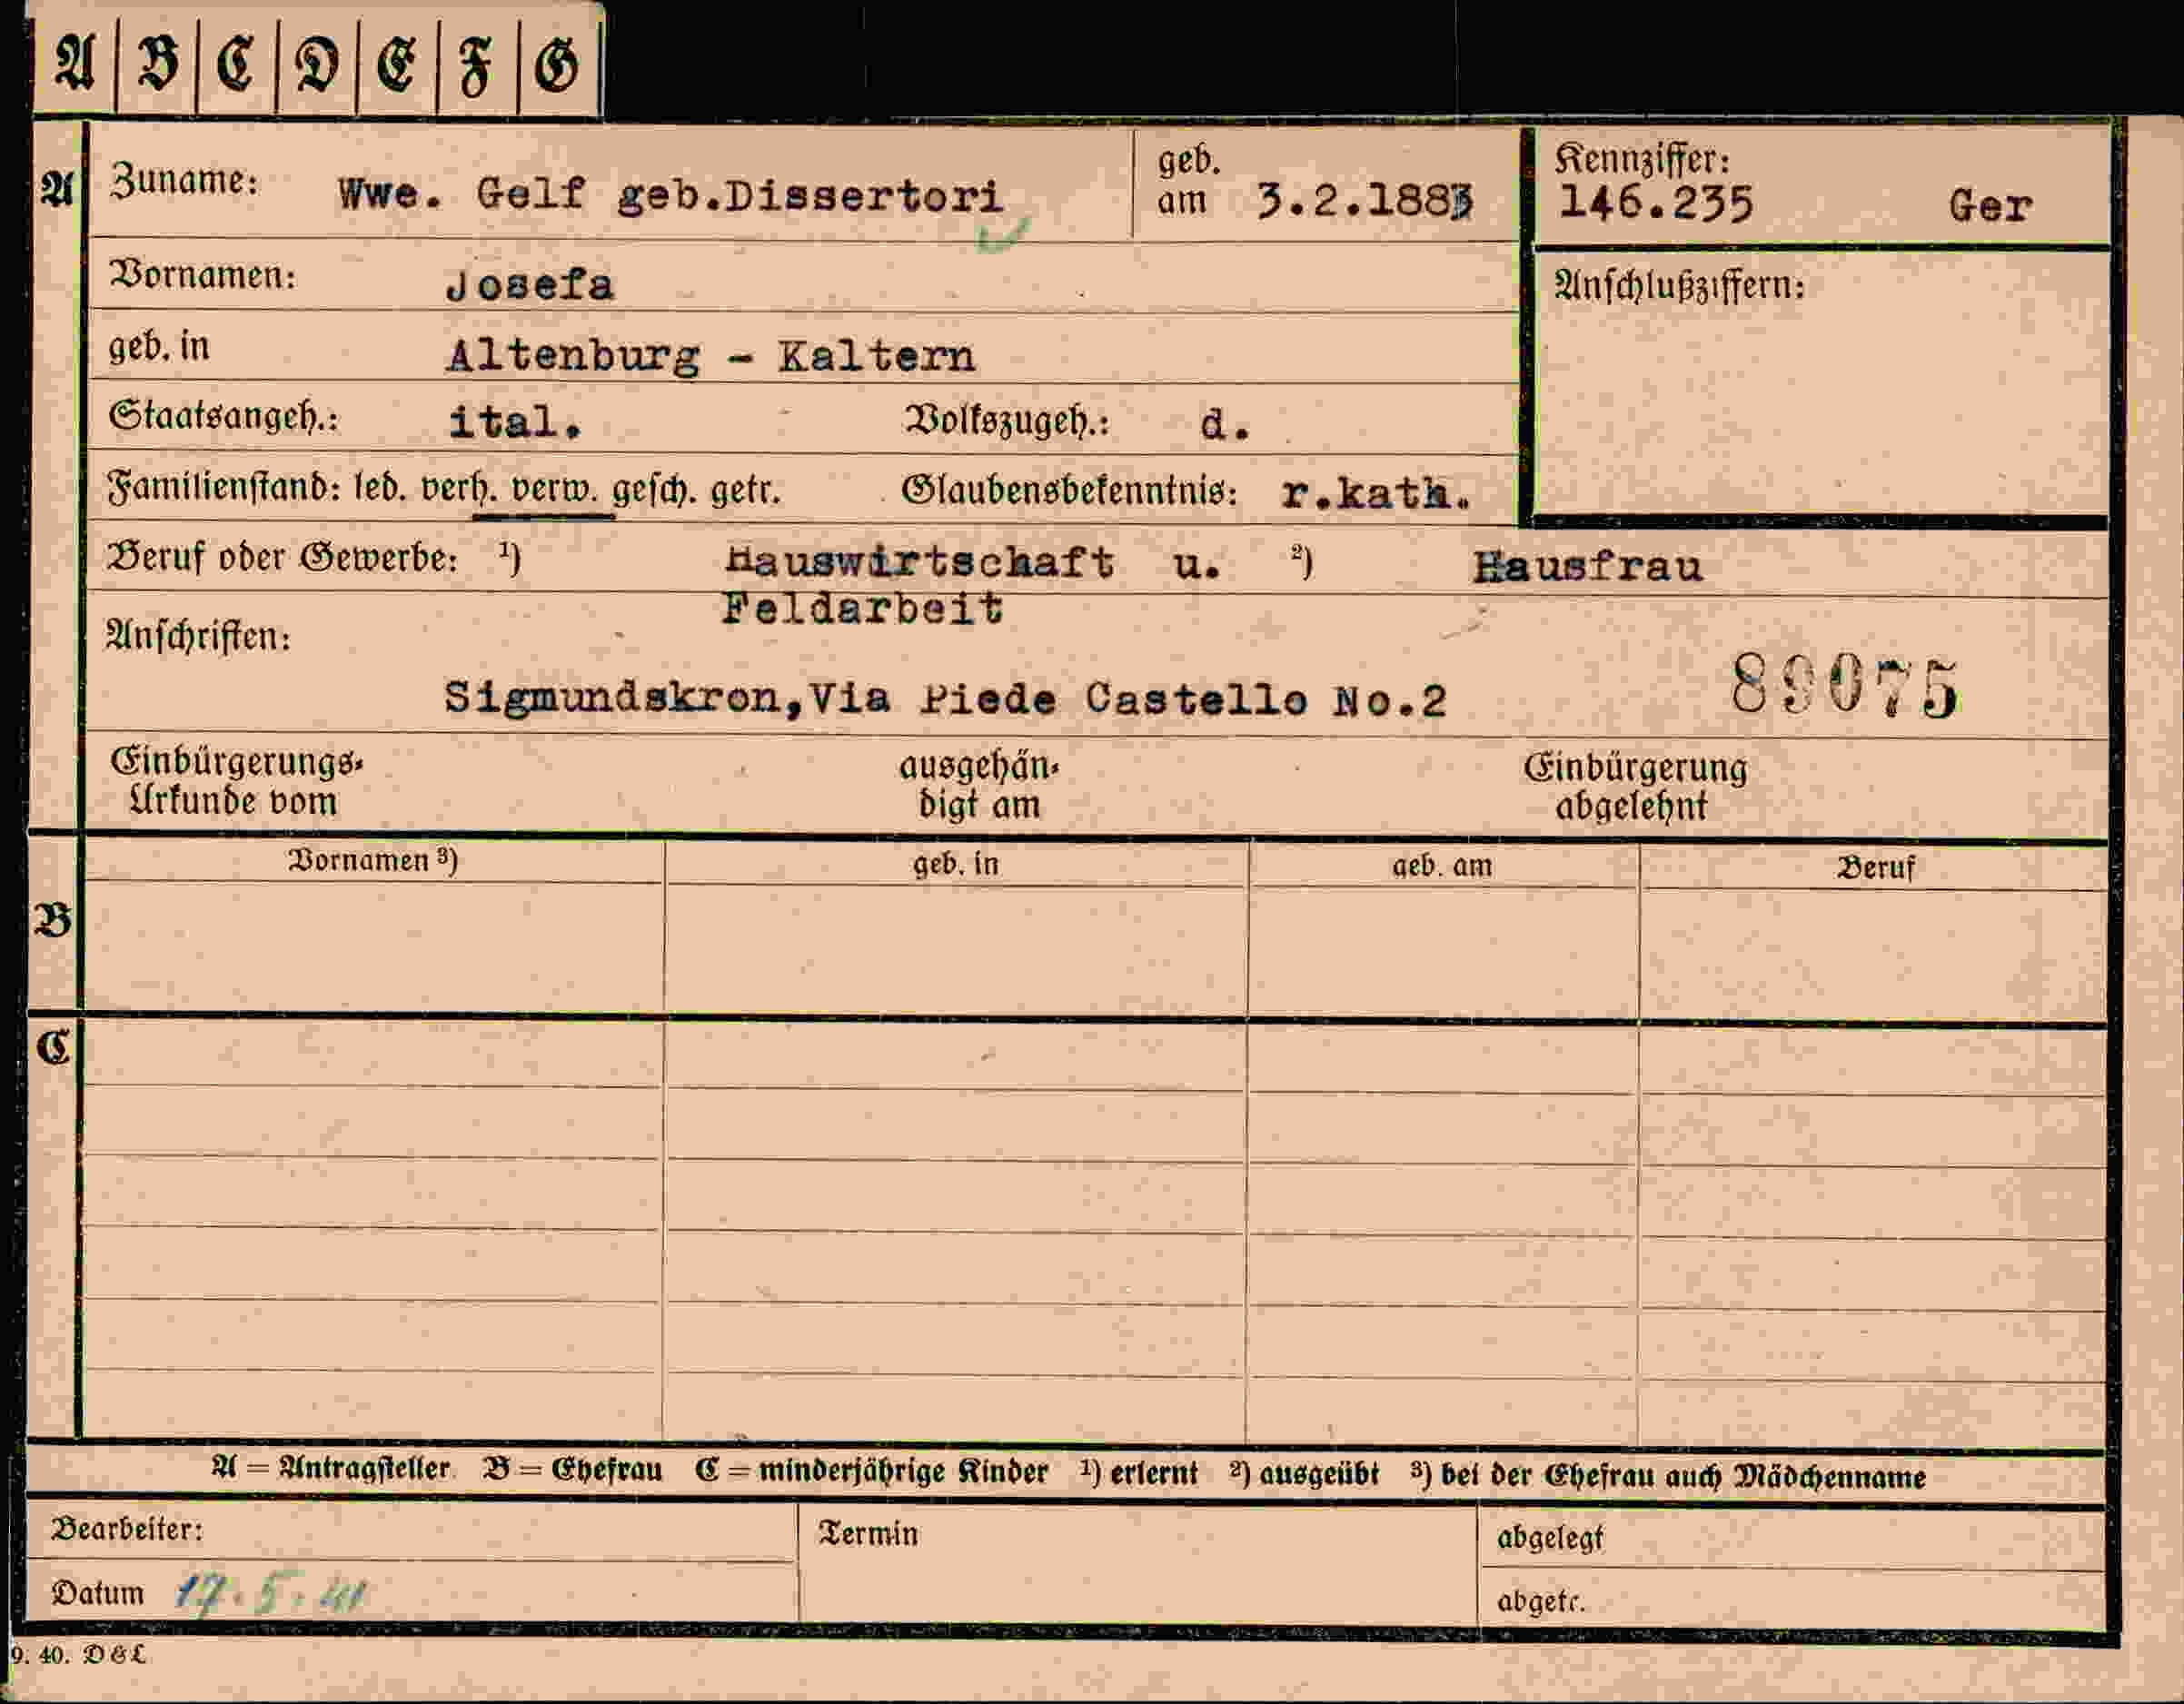 A B C D E F G
A Zuname: Wwe. Gelf geb.Dissertori geb. am 3.2.1883 Kennziffer: 146.235 Ger
Vornamen: Josefa Anschlußziffern:
geb. in Altenburg - Kaltern
Staatsangeh.: ital. Volkszugeh.: d.
Familienstand: led. verh. verw. gesch. getr. Glaubensbekenntnis: r.kath.
Beruf oder Gewerbe: ¹) Hauswirtschaft u. ²) Hausfrau
Feldarbeit
Anschriften:
Sigmundskron,Via Piede Castello No.2 89075
Einbürgerungs- ausgehän- Einbürgerung
Urkunde vom digt am abgelehnt
Vornamen ³) geb. in geb. am Beruf
B
C
A = Antragsteller B = Ehefrau C = minderjährige Kinder ¹) erlernt ²) ausgeübt ³) bei der Ehefrau auch Mädchenname
Bearbeiter: Termin abgelegt
Datum 17.5.41 abgetr.
9. 40. D & L